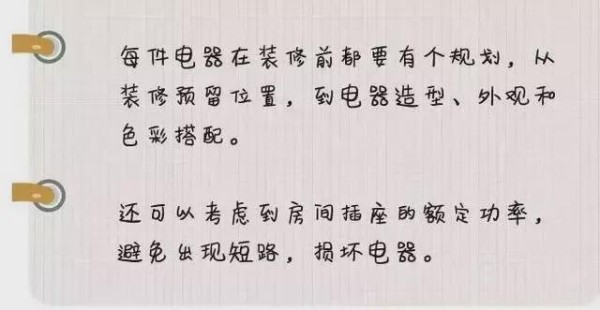 每件电器在装修前都要有个规划，从
装修预留位置，到电器造型、外观和
色彩搭配。
还可以考虑到房间插座的额定功率，
避免出现短路，损坏电器。